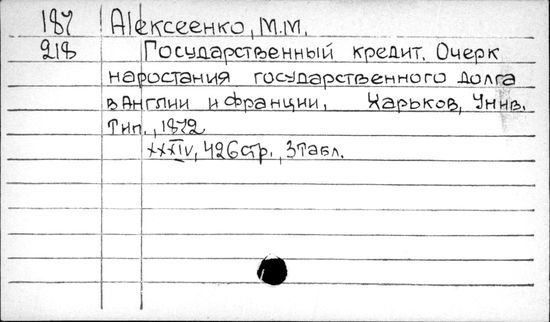 187 Алексеенко, М.М.
218 Государственный кредит. Очерк
наростания государственного долга
в Англии и Франции, Харьков, Унив.
Тип., 1872
XXXIV, 426 стр., 3 табл.